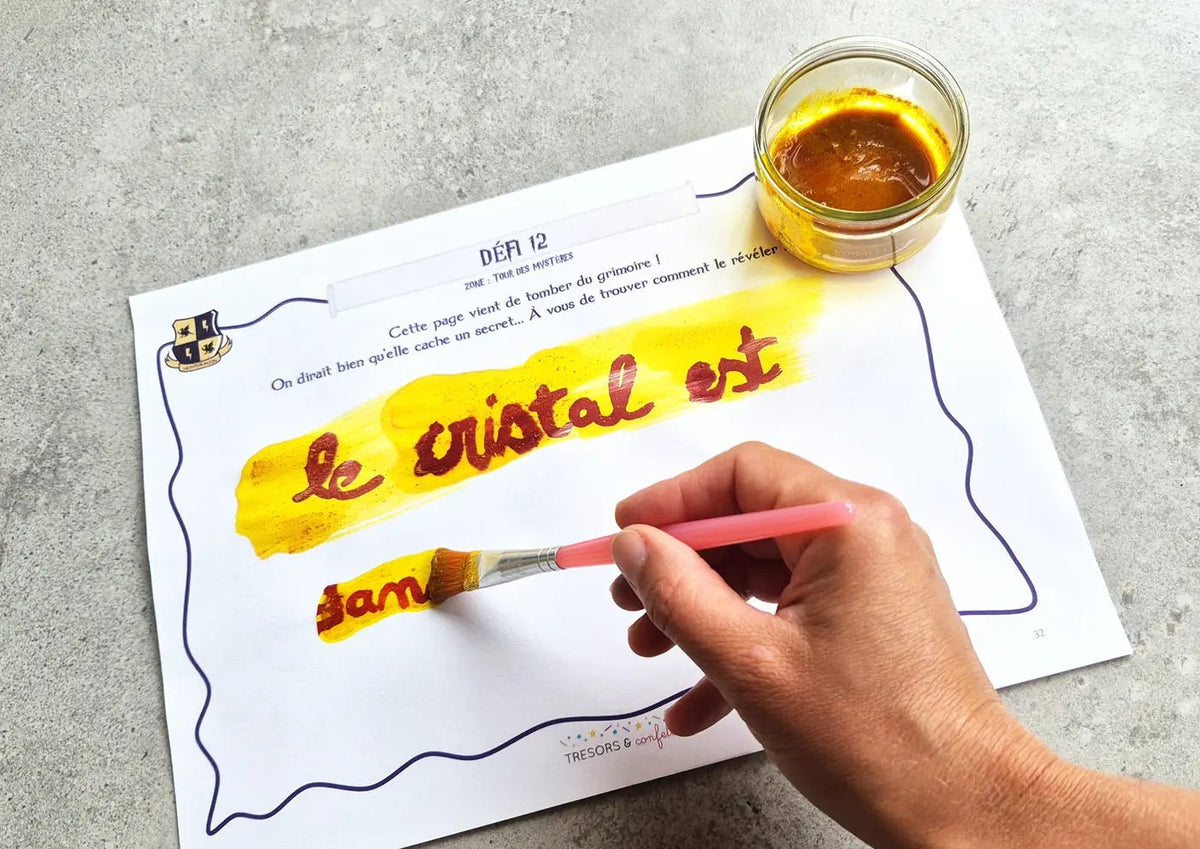 DÉFI 12
ZONE : TOUR DES MYSTÈRES
Cette page vient de tomber du grimoire !
On dirait bien qu'elle cache un secret... À vous de trouver comment le révéler
le cristal est
dan
32
TRESORS & confet